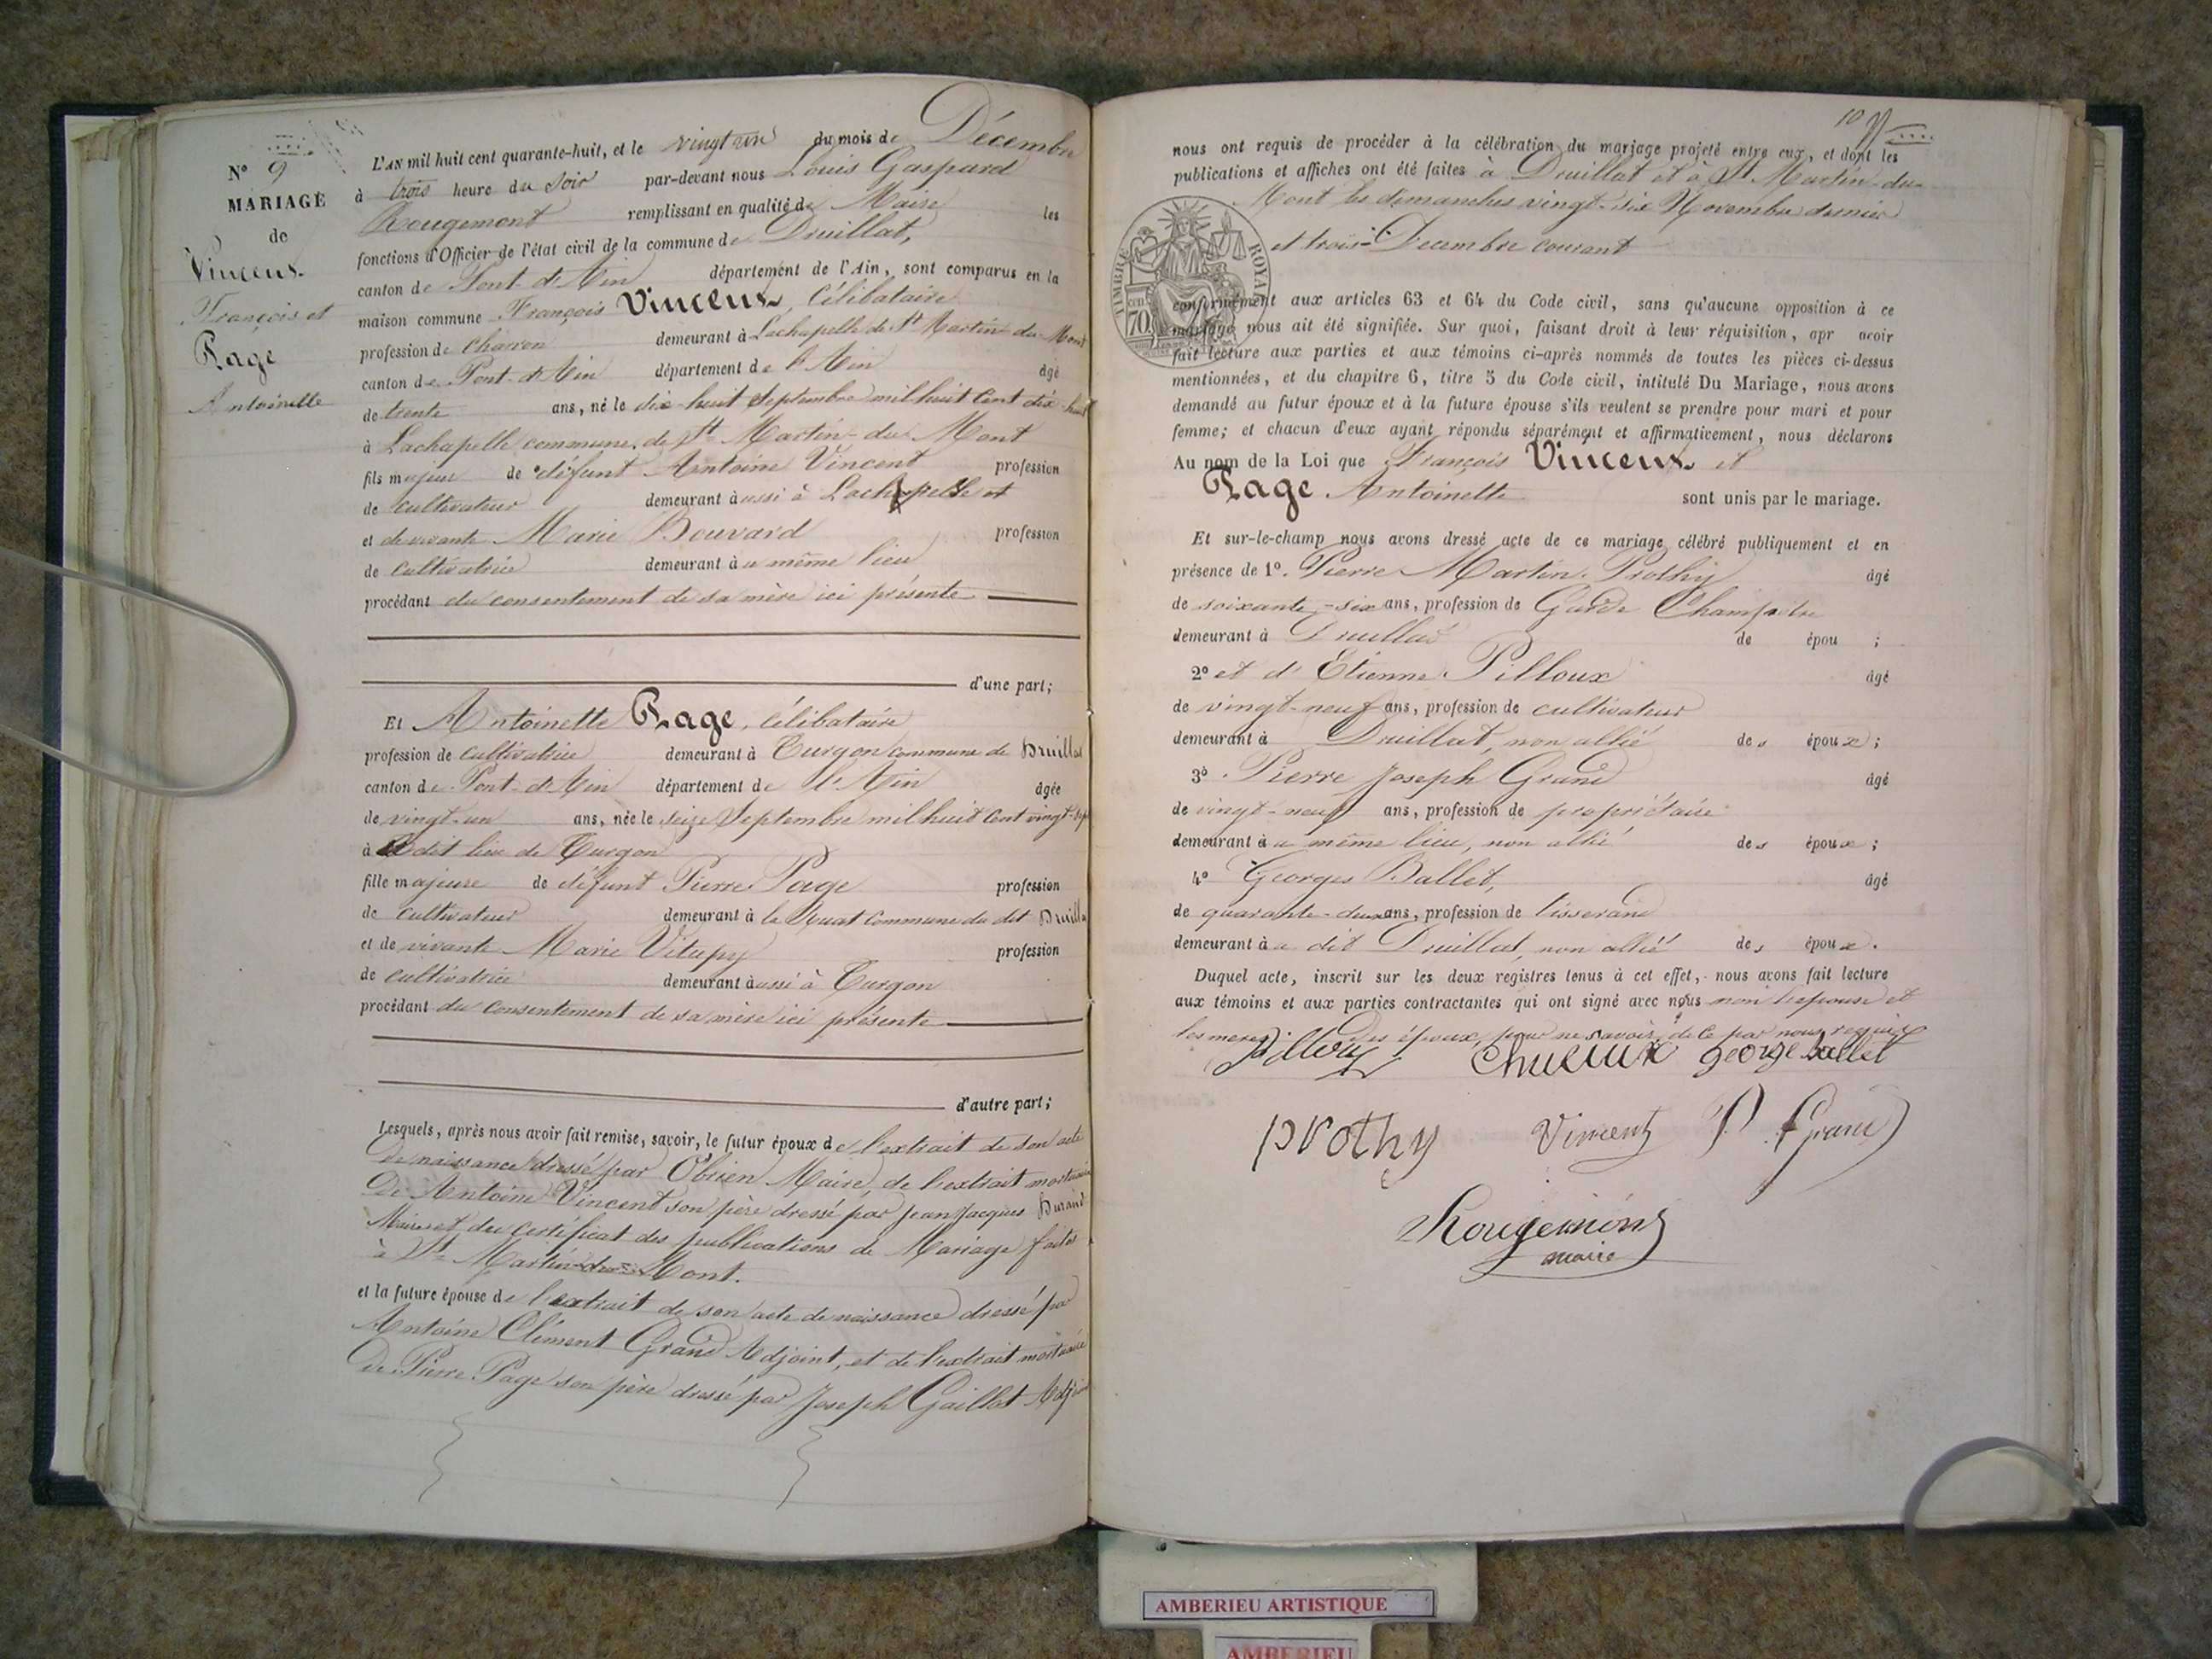 N° 9
MARIAGE
de
Vincent
François et
Page
Antoinette
L'AN mil huit cent quarante-huit, et le vingt un du mois de Décembre
à trois heure du soir par-devant nous Louis Gaspard
Rougemont remplissant en qualité de Maire les
fonctions d'Officier de l'état civil de la commune de Druillat,
canton de Pont-d'Ain département de l'Ain, sont comparus en la
maison commune François Vincent, célibataire
profession de charron demeurant à Lachapelle de St Martin-du-Mont
canton de Pont-d'Ain département de l'Ain âgé
de trente ans, né le dix-huit Septembre mil huit cent dix-huit
à Lachapelle commune de St Martin-du-Mont
fils majeur de défunt Antoine Vincent profession
de cultivateur demeurant aussi à Lachapelle et
et de vivante Marie Bouvard profession
de cultivatrice demeurant au même lieu
procédant du consentement de sa mère ici présente
d'une part;
Et Antoinette Page, célibataire
profession de cultivatrice demeurant à Turgon commune de Druillat
canton de Pont-d'Ain département de l'Ain âgée
de vingt-un ans, née le seize Septembre mil huit cent vingt-sept
à dit lieu de Turgon
fille majeure de défunt Pierre Page profession
de cultivateur demeurant à la Ruat commune du dit Druillat
et de vivante Marie Vitupy profession
de cultivatrice demeurant aussi à Turgon
procédant du consentement de sa mère ici présente
d'autre part;
Lesquels, après nous avoir fait remise, savoir, le futur époux de l'extrait de son acte
de naissance dressé par Obrien Maire, de l'extrait mortuaire
de Antoine Vincent son père dressé par Jean Jacques Durand
Maire et du certificat des publications de Mariage faites
à St Martin-du-Mont.
et la future épouse de l'extrait de son acte de naissance dressé par
Antoine Clément Grand Adjoint, et de l'extrait mortuaire
de Pierre Page son père dressé par Joseph Gaillot Adjoint
10
nous ont requis de procéder à la célébration du mariage projeté entre eux, et dont les
publications et affiches ont été faites à Druillat et à St Martin-du-
Mont les dimanches vingt-six Novembre dernier
et trois Decembre courant
TIMBRE ROYAL
70
conformément aux articles 63 et 64 du Code civil, sans qu'aucune opposition à ce
mariage nous ait été signifiée. Sur quoi, faisant droit à leur réquisition, apr avoir
fait lecture aux parties et aux témoins ci-après nommés de toutes les pièces ci-dessus
mentionnées, et du chapitre 6, titre 5 du Code civil, intitulé Du Mariage, nous avons
demandé au futur époux et à la future épouse s'ils veulent se prendre pour mari et pour
femme; et chacun d'eux ayant répondu séparément et affirmativement, nous déclarons
Au nom de la Loi que François Vincent et
Page Antoinette sont unis par le mariage.
Et sur-le-champ nous avons dressé acte de ce mariage célébré publiquement et en
présence de 1° Pierre Martin Prothy âgé
de soixante-six ans, profession de Garde Champêtre
demeurant à Druillat de épou ;
2° et d'Etienne Pilloux âgé
de vingt-neuf ans, profession de cultivateur
demeurant à Druillat, non allié des époux ;
3° Pierre Joseph Grand âgé
de vingt-neuf ans, profession de propriétaire
demeurant au même lieu, non allié des époux ;
4° Georges Ballet, âgé
de quarante-deux ans, profession de tisserand
demeurant au dit Druillat, non allié des époux.
Duquel acte, inscrit sur les deux registres tenus à cet effet, nous avons fait lecture
aux témoins et aux parties contractantes qui ont signé avec nous non l'épouse et
les meres des époux, pour ne savoir, de ce par nous requis
Pilloux george ballet
prothy Vincent P. J. Grand
Rougemont
maire
AMBERIEU ARTISTIQUE
AMBERIEU